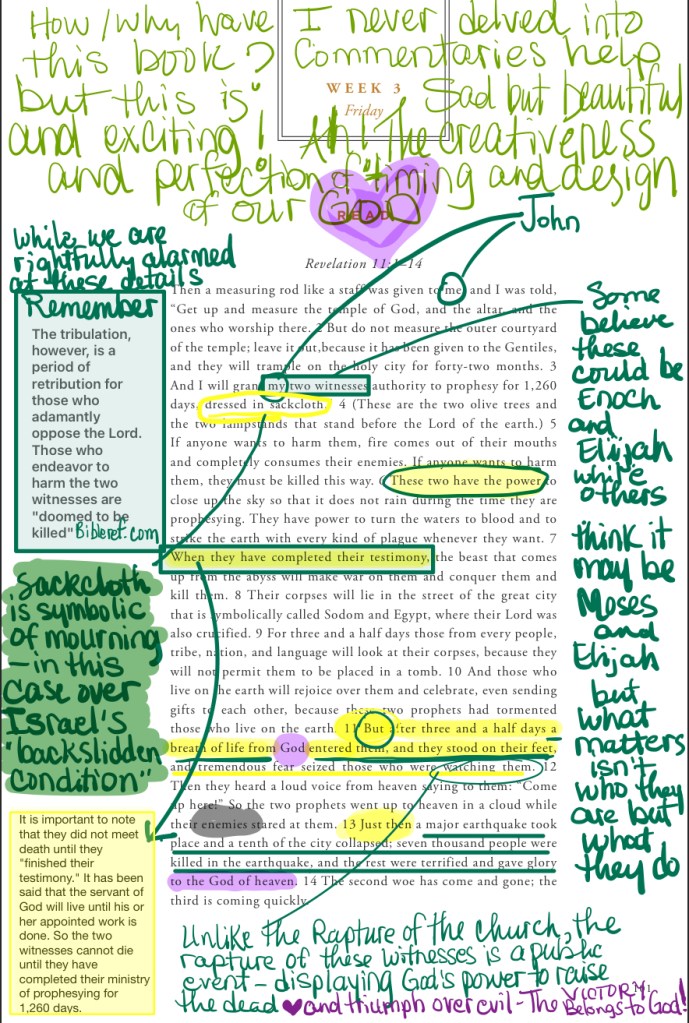 How/why have I never delved into
this book? Commentaries help
but this is Sad but beautiful
and exciting! Ah! The creativeness
and perfection of timing and design
of our GOD
WEEK 3
Friday
READ
John
while we are
rightfully alarmed
at these details
Remember
The tribulation,
however, is a
period of
retribution for
those who
adamantly
oppose the Lord.
Those who
endeavor to
harm the two
witnesses are
"doomed to be
killed" Bibleref.com
Sackcloth
is symbolic
of mourning
- in this
case over
Israel's
"backslidden
condition"
It is important to note
that they did not meet
death until they
"finished their
testimony." It has been
said that the servant of
God will live until his or
her appointed work is
done. So the two
witnesses cannot die
until they have
completed their ministry
of prophesying for
1,260 days.
Revelation 11:1-14
Then a measuring rod like a staff was given to me, and I was told,
"Get up and measure the temple of God, and the altar, and the
ones who worship there. 2 But do not measure the outer courtyard
of the temple; leave it out, because it has been given to the Gentiles,
and they will trample on the holy city for forty-two months. 3
And I will grant my two witnesses authority to prophesy for 1,260
days, dressed in sackcloth. 4 (These are the two olive trees and
the two lampstands that stand before the Lord of the earth.) 5
If anyone wants to harm them, fire comes out of their mouths
and completely consumes their enemies. If anyone wants to harm
them, they must be killed this way. 6 These two have the power to
close up the sky so that it does not rain during the time they are
prophesying. They have power to turn the waters to blood and to
strike the earth with every kind of plague whenever they want. 7
When they have completed their testimony, the beast that comes
up from the abyss will make war on them and conquer them and
kill them. 8 Their corpses will lie in the street of the great city
that is symbolically called Sodom and Egypt, where their Lord was
also crucified. 9 For three and a half days those from every people,
tribe, nation, and language will look at their corpses, because they
will not permit them to be placed in a tomb. 10 And those who
live on the earth will rejoice over them and celebrate, even sending
gifts to each other, because these two prophets had tormented
those who live on the earth. 11 But after three and a half days a
breath of life from God entered them, and they stood on their feet,
and tremendous fear seized those who were watching them. 12
Then they heard a loud voice from heaven saying to them: "Come
up here!" So the two prophets went up to heaven in a cloud while
their enemies stared at them. 13 Just then a major earthquake took
place and a tenth of the city collapsed; seven thousand people were
killed in the earthquake, and the rest were terrified and gave glory
to the God of heaven. 14 The second woe has come and gone; the
third is coming quickly.
Some
believe
these
could be
Enoch
and
Elijah
while
others
think it
may be
Moses
and
Elijah
but
what
matters
isn't
who they
are but
what
they do
Unlike the Rapture of the church, the
rapture of these witnesses is a public
event - displaying God's power to raise
the dead ♥ and triumph over evil - The VICTORY
Belongs to God!